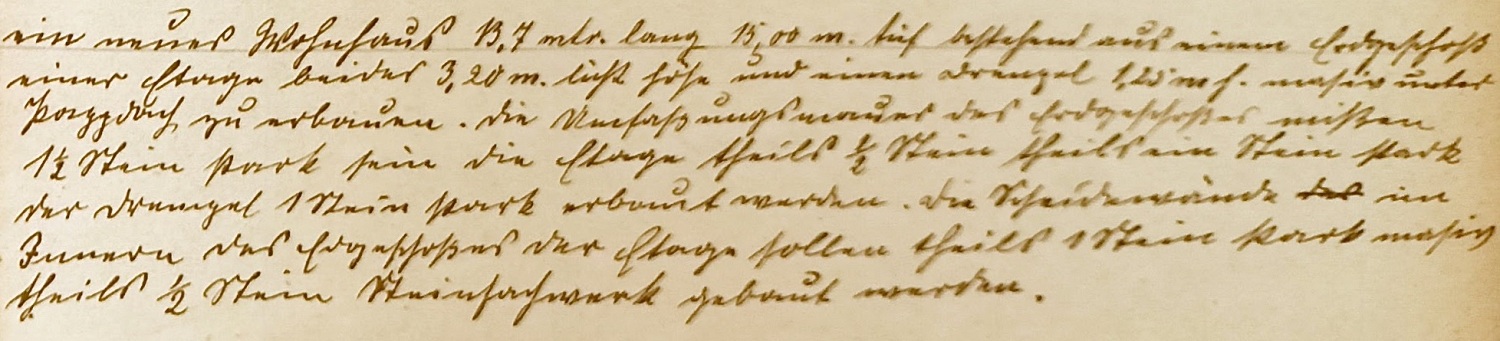 ein neues Wohnhaus 13,7 mtr. lang 15,00 m. tief bestehend aus einem Erdgeschoß
einer Etage beides 3,20 m. licht höhe und einen Drempel 1,25 m h. masiv unter
Pappdach zu erbauen. Die Umfaßungsmauer des Erdgeschoßes müßen
1½ Stein stark sein die Etage theils ½ Stein theils ein Stein stark
der Drempel 1 Stein stark erbaut werden. Die Scheidewände des im
Innern des Edgeschoßes der Etage sollen theils 1 Stein stark masiv
theils ½ Stein Steinfachwerk gebaut werden.